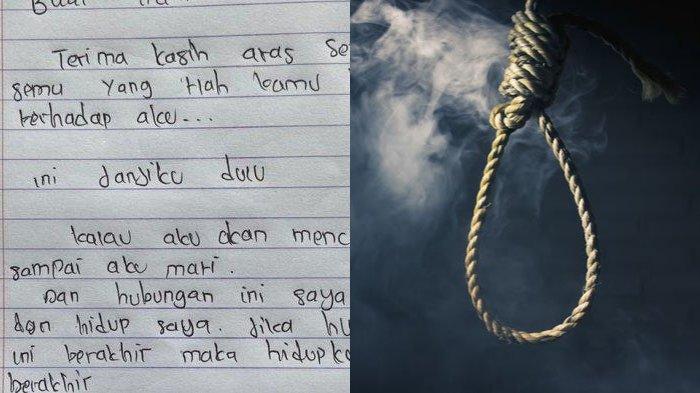 Terima kasih atas se
semu yang tlah kamu
terhadap aku...
ini janjiku dulu
kalau aku akan menc
sampai aku mati.
Dan hubungan ini saya
dan hidup saya. Jika hu
ini berakhir maka hidupk
berakhir